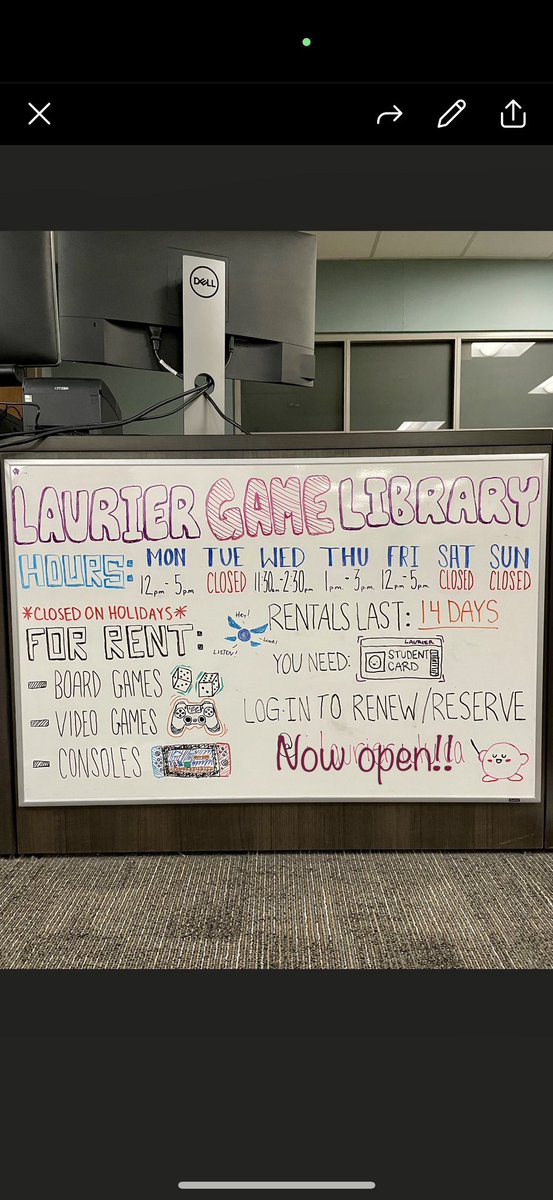 DELL
CITIZEN
LAURIER GAME LIBRARY
HOURS: MON TUE WED THU FRI SAT SUN
12pm-5pm CLOSED 11:30am-2:30pm 1pm-3pm 12pm-5pm CLOSED CLOSED
*CLOSED ON HOLIDAYS*
Hey!
LISTEN!
RENTALS LAST: 14 DAYS
FOR RENT:
YOU NEED: LAURIER STUDENT CARD
- BOARD GAMES
- VIDEO GAMES
- CONSOLES
LOG-IN TO RENEW/RESERVE
Now open!!